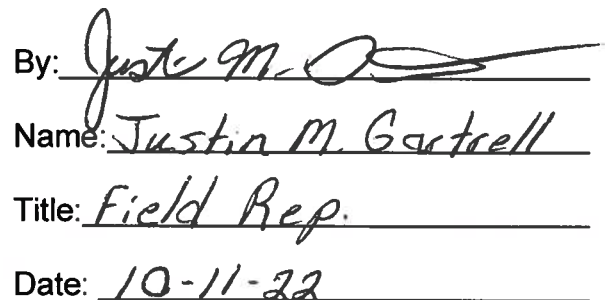 By: Justin M.
Name: Justin M. Gartrell
Title: Field Rep.
Date: 10-11-22